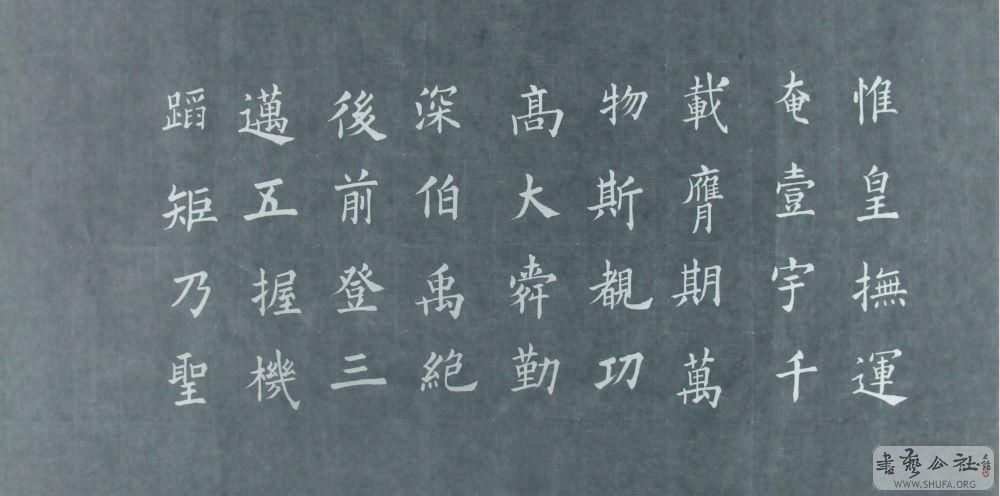 惟皇撫運
奄壹宇千
載膺期萬
物斯覩功
高大舜勤
深伯禹絕
後前登三
邁五握機
蹈矩乃聖
書藝公社
WWW.SHUFA.ORG